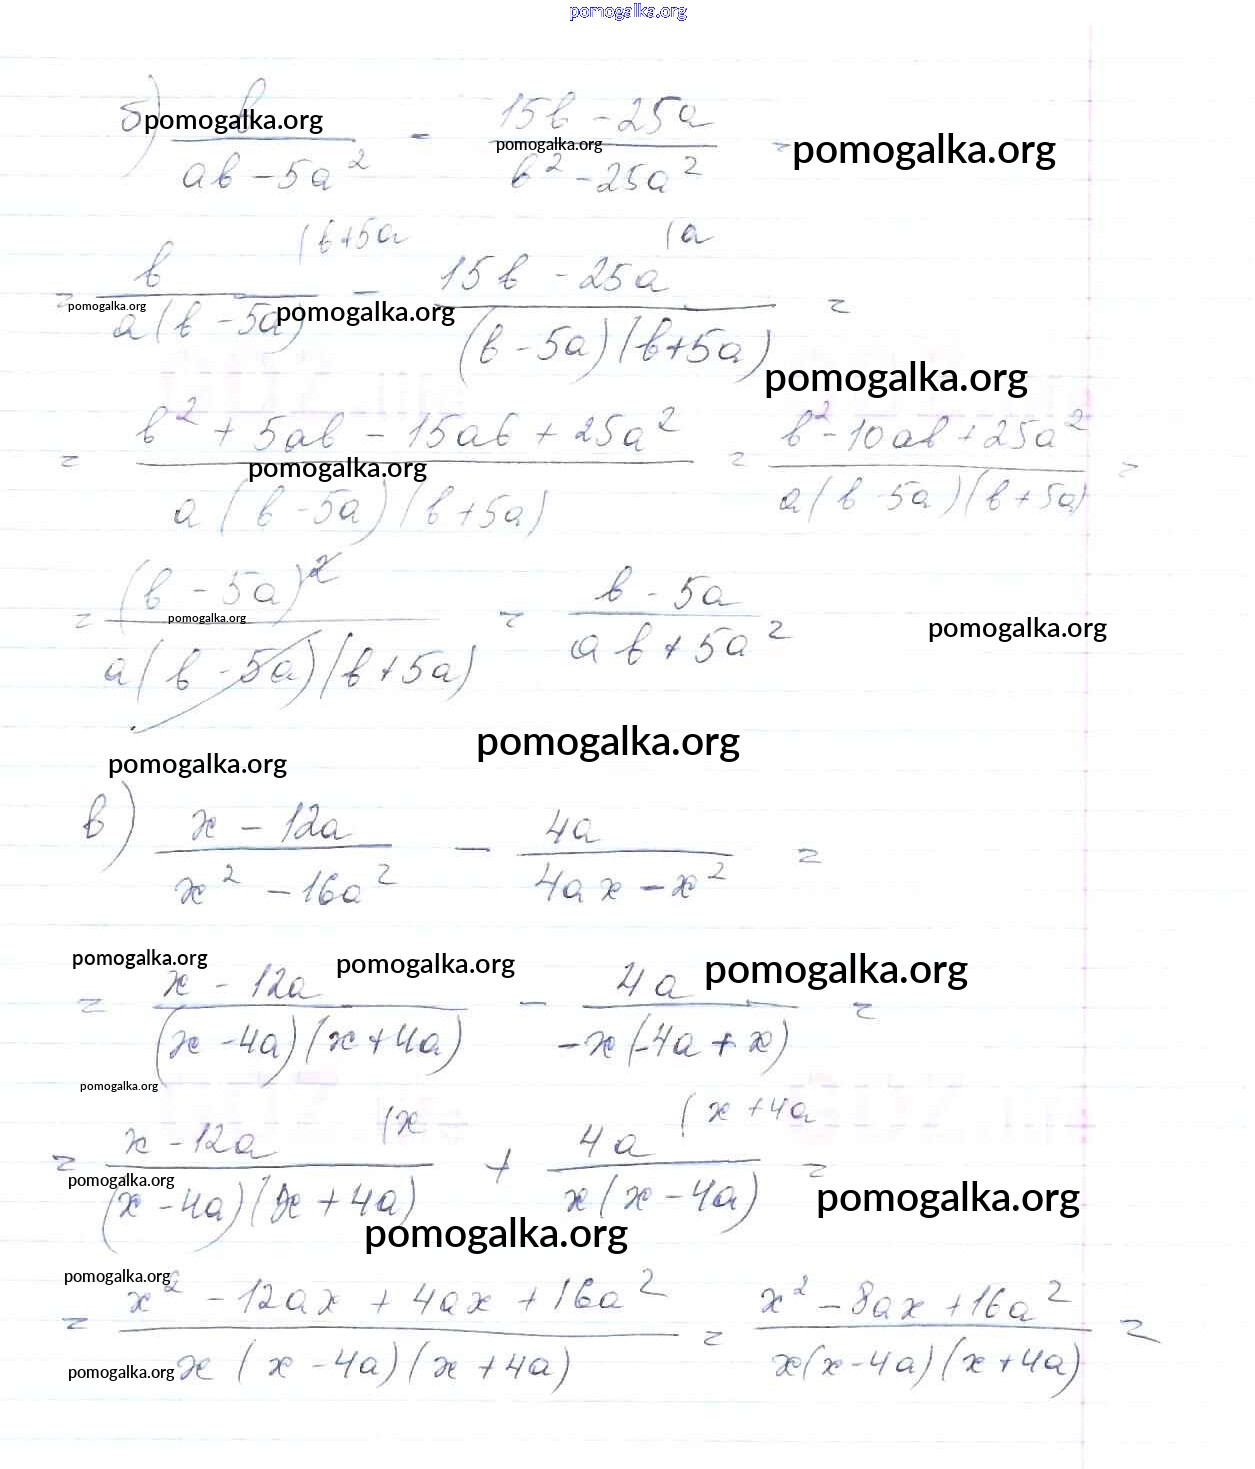 pomogalka.org
б) b / (ab - 5a²) - (15b - 25a) / (b² - 25a²) =
pomogalka.org pomogalka.org pomogalka.org
= b / (a(b - 5a)) (b+5a - (15b - 25a) / ((b - 5a)(b+5a)) (a =
pomogalka.org pomogalka.org
pomogalka.org
= (b² + 5ab - 15ab + 25a²) / (a(b - 5a)(b+5a)) = (b² - 10ab + 25a²) / (a(b - 5a)(b + 5a)) =
pomogalka.org
= (b - 5a)² / (a(b - 5a)(b + 5a)) = (b - 5a) / (ab + 5a²)
pomogalka.org pomogalka.org
pomogalka.org
pomogalka.org
в) (x - 12a) / (x² - 16a²) - 4a / (4ax - x²) =
pomogalka.org pomogalka.org pomogalka.org
= (x - 12a) / ((x - 4a)(x + 4a)) - 4a / (-x(-4a + x)) =
pomogalka.org
= (x - 12a) / ((x - 4a)(x + 4a)) (x + 4a / (x(x - 4a)) (x + 4a =
pomogalka.org pomogalka.org
pomogalka.org
pomogalka.org
= (x² - 12ax + 4ax + 16a²) / (x(x - 4a)(x + 4a)) = (x² - 8ax + 16a²) / (x(x - 4a)(x + 4a)) =
pomogalka.org